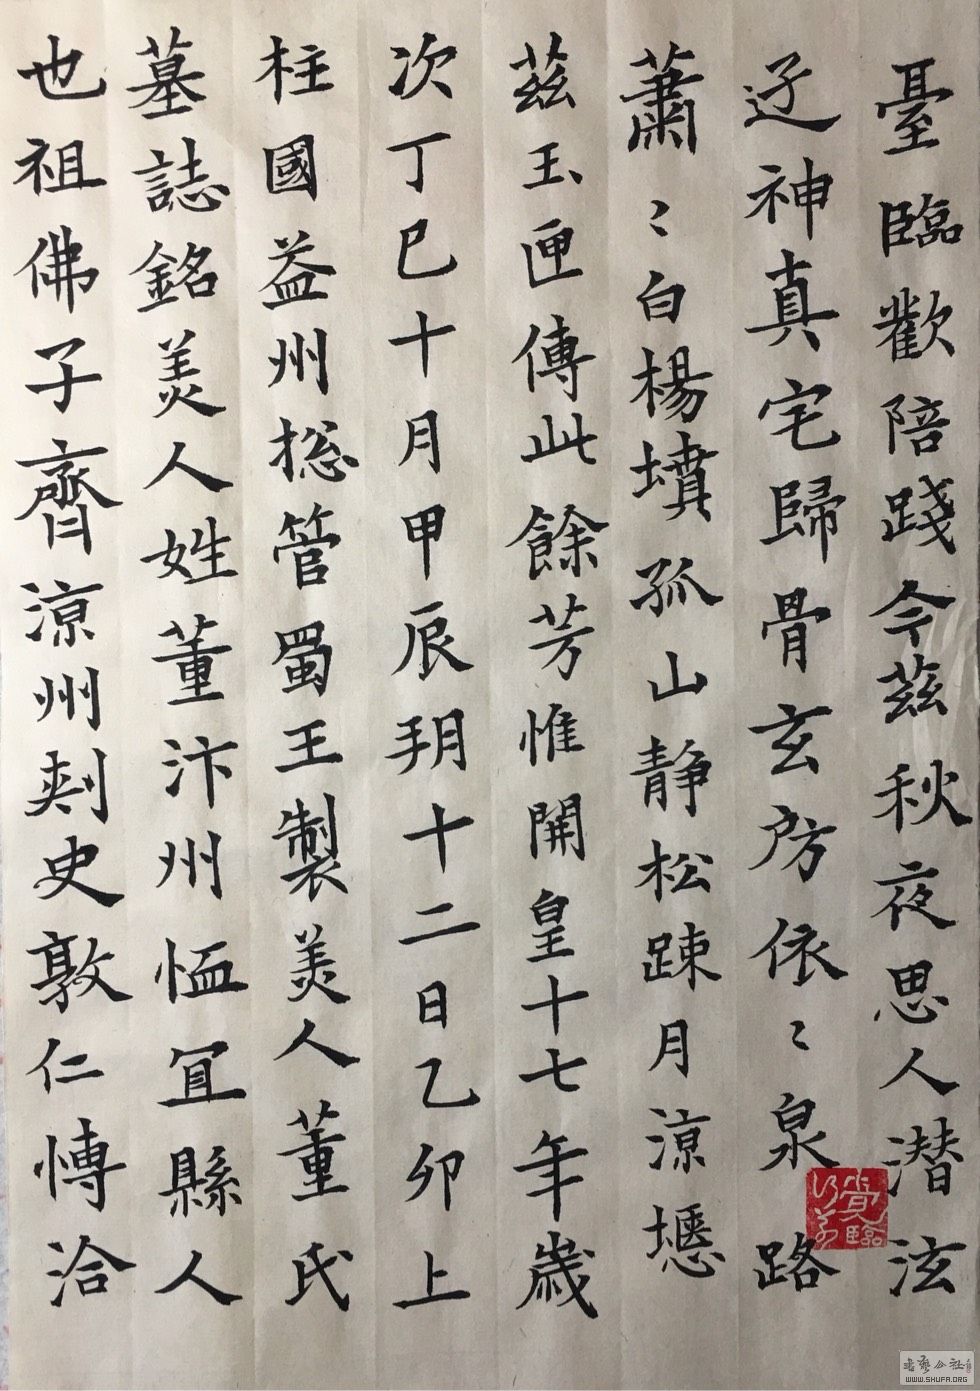 臺臨歡陪踐今茲秋夜思人潜泫
迂神真宅歸骨玄房依〻泉路
蕭〻白楊墳孤山静松踈月涼壥
茲玉匣傳此餘芳惟開皇十七年歲
次丁巳十月甲辰朔十二日乙卯上
柱國益州揔管蜀王製美人董氏
墓誌銘美人姓董汴州恤冝縣人
也祖佛子齊涼州刺史敦仁愽洽
書藝公社
WWW.SHUFA.ORG